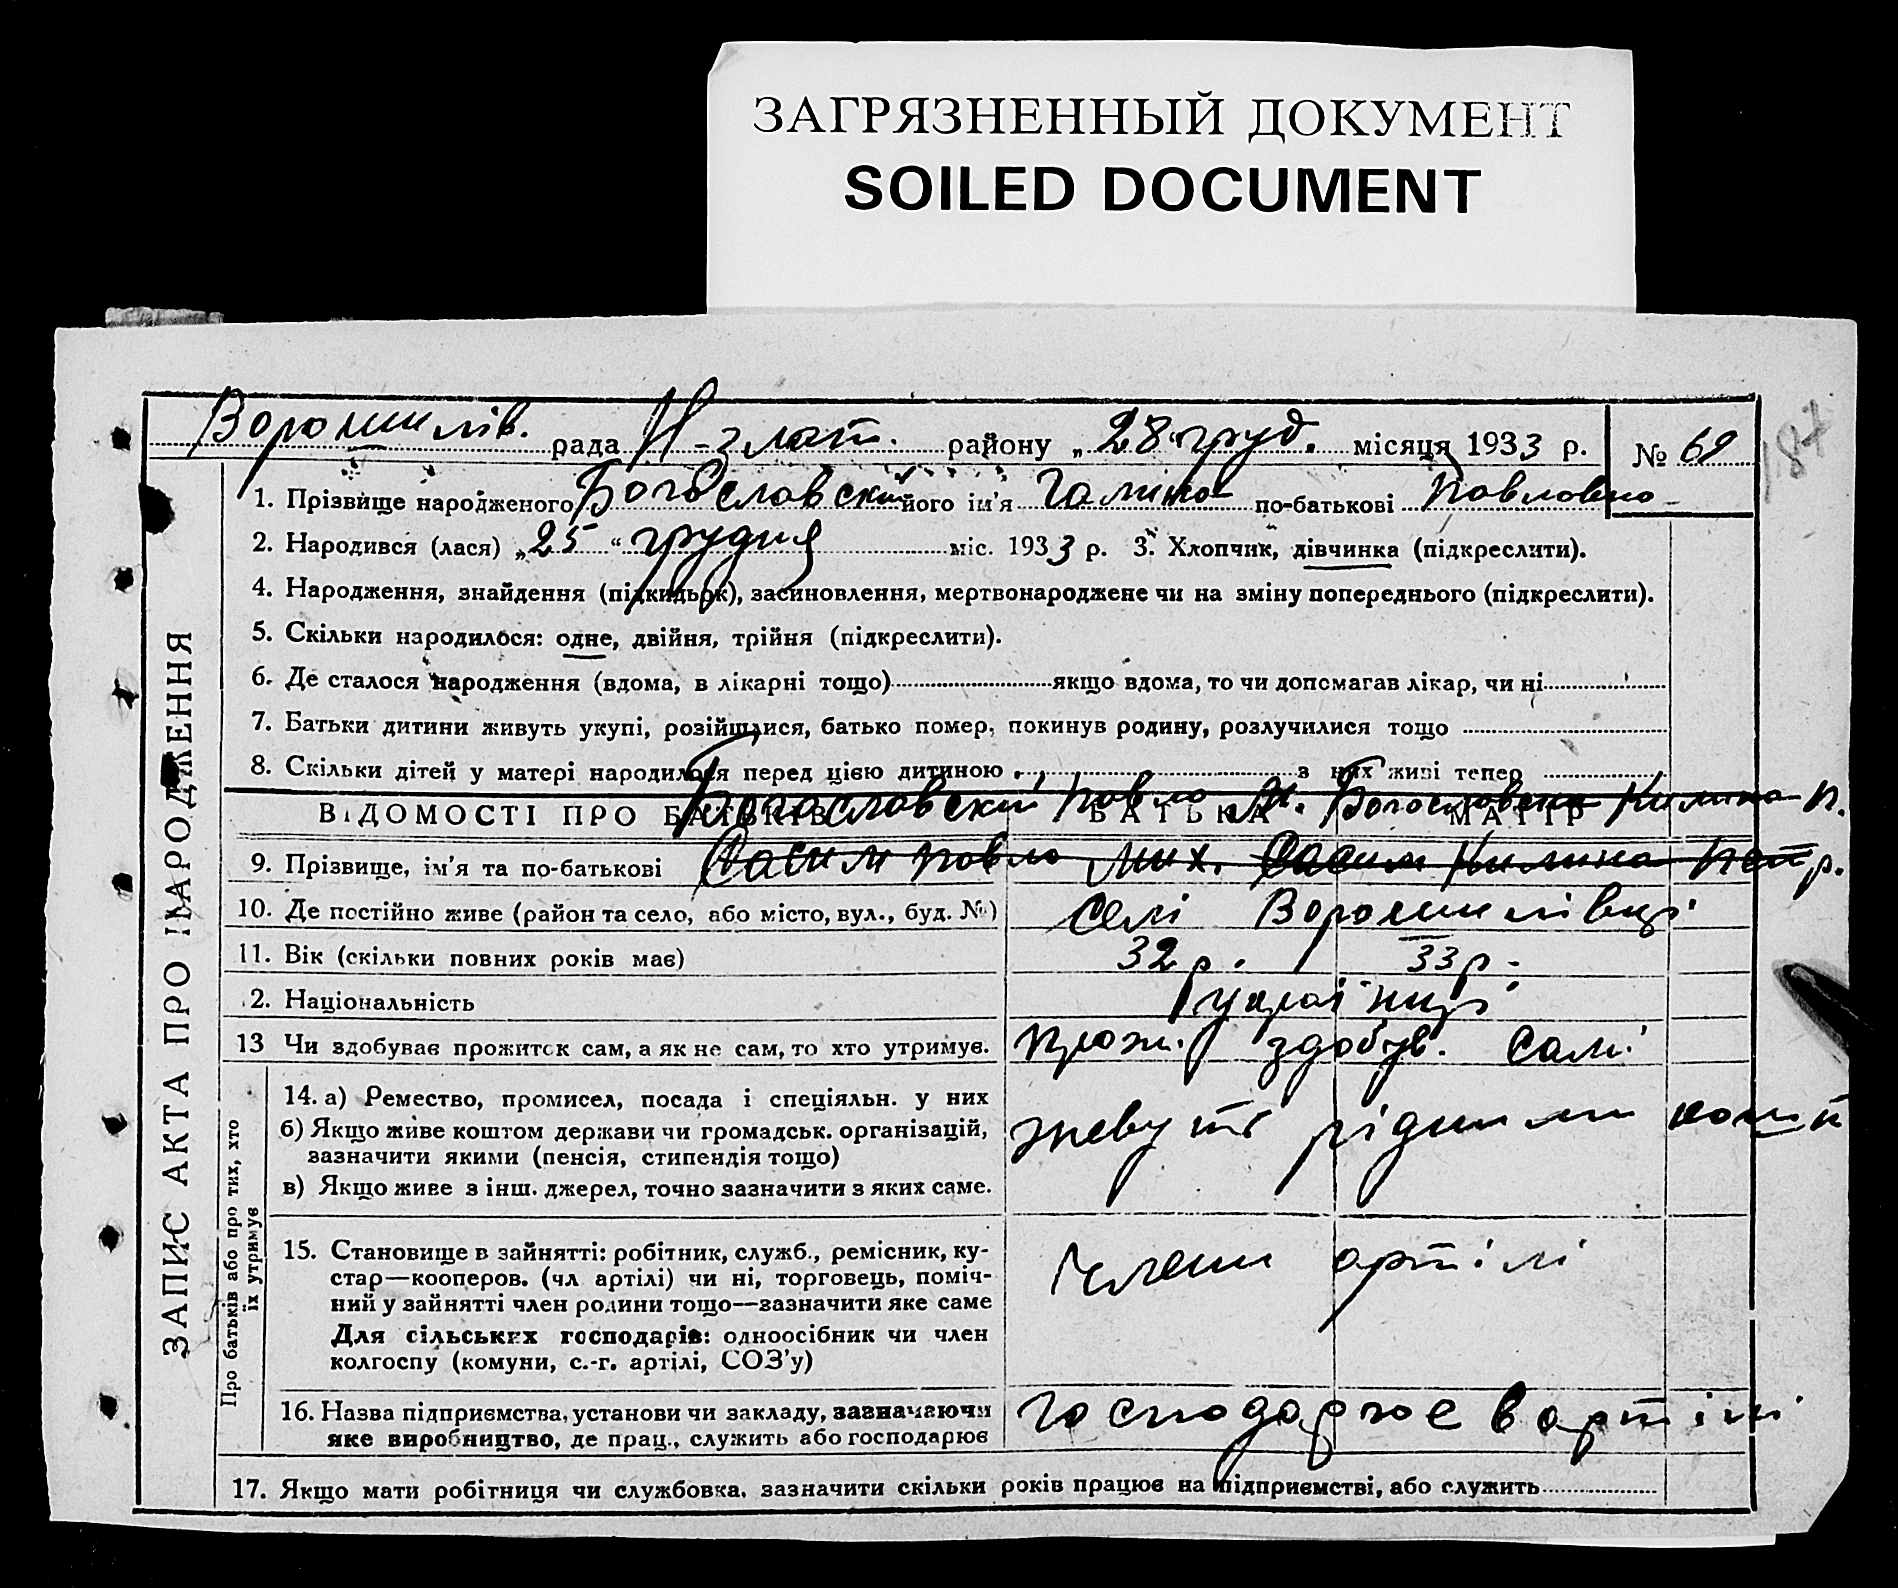 ЗАГРЯЗНЕННЫЙ ДОКУМЕНТ
SOILED DOCUMENT
187
Ворошилів. рада Н-злат. району „28" груд. місяця 1933 р. № 69
1. Прізвище народженого Богославский його ім'я Галина по-батькові Павловна
2. Народився (лася) „25" грудня міс. 1933 р. 3. Хлопчик, дівчинка (підкреслити).
4. Народження, знайдення (підкидьок), засиновлення, мертвонароджене чи на зміну попереднього (підкреслити).
5. Скільки народилося: одне, двійня, трійня (підкреслити).
6. Де сталося народження (вдома, в лікарні тощо) якщо вдома, то чи допомагав лікар, чи ні
7. Батьки дитини живуть укупі, розійшлися, батько помер, покинув родину, розлучилися тощо
8. Скільки дітей у матері народилося перед цією дитиною з них живі тепер
Богославский Павло М. Богославска Килина П.
ВІДОМОСТІ ПРО БАТЬКІВ БАТЬКА МАТІР
9. Прізвище, ім'я та по-батькові Павло Мих. Килина Петр.
10. Де постійно живе (район та село, або місто, вул., буд. №) селі Ворошилівці
11. Вік (скільки повних років має) 32 р. 33 р.
12. Національність українці
13 Чи здобуває прожиток сам, а як не сам, то хто утримує. прож. здобув. самі
14. а) Ремество, промисел, посада і спеціяльн. у них
б) Якщо живе коштом держави чи громадськ. організацій,
зазначити якими (пенсія, стипендія тощо)
в) Якщо живе з інш. джерел, точно зазначити з яких саме.
15. Становище в зайнятті: робітник, служб., ремісник, ку-
стар—кооперов. (чл артілі) чи ні, торговець, поміч-
ний у зайнятті член родини тощо—зазначити яке саме
Для сільських господарів: одноосібник чи член
колгоспу (комуни, с.-г. артілі, СОЗ'у)
члени артілі
16. Назва підприємства, установи чи закладу, зазначаючи
яке виробництво, де прац., служить або господарює
господарює в артілі
17. Якщо мати робітниця чи службовка, зазначити скільки років працює на підприємстві, або служить
ЗАПИС АКТА ПРО НАРОДЖЕННЯ
Про батьків або про тих, хто
їх утримує